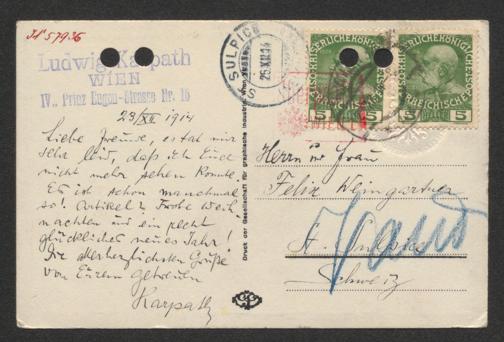 JN 57936
Ludwig Karpath
WIEN
IV., Prinz Eugen-Strasse Nr. 16
23/XII 1914
Liebe Freunde, es tat mir
sehr leid, daß ich Euch
nicht mehr sehen konnte.
Es ist schon manchmal
so! Frohe Weih-
nachten und ein recht
glückliches neues Jahr!
Die allerherzlichsten Grüße
von Eurem getreuen
Karpath
Druck der Gesellschaft für graphische Industrie, Wien
ST SULPICE
25 XII 14
KAISERLICHE KÖNIGLICHE
ÖSTERREICHISCHE POST
5 5
KAISERLICHE KÖNIGLICHE
ÖSTERREICHISCHE POST
5 5
Herrn und Frau
Felix Weingartner
St. Sulpice
Vaud
Schweiz